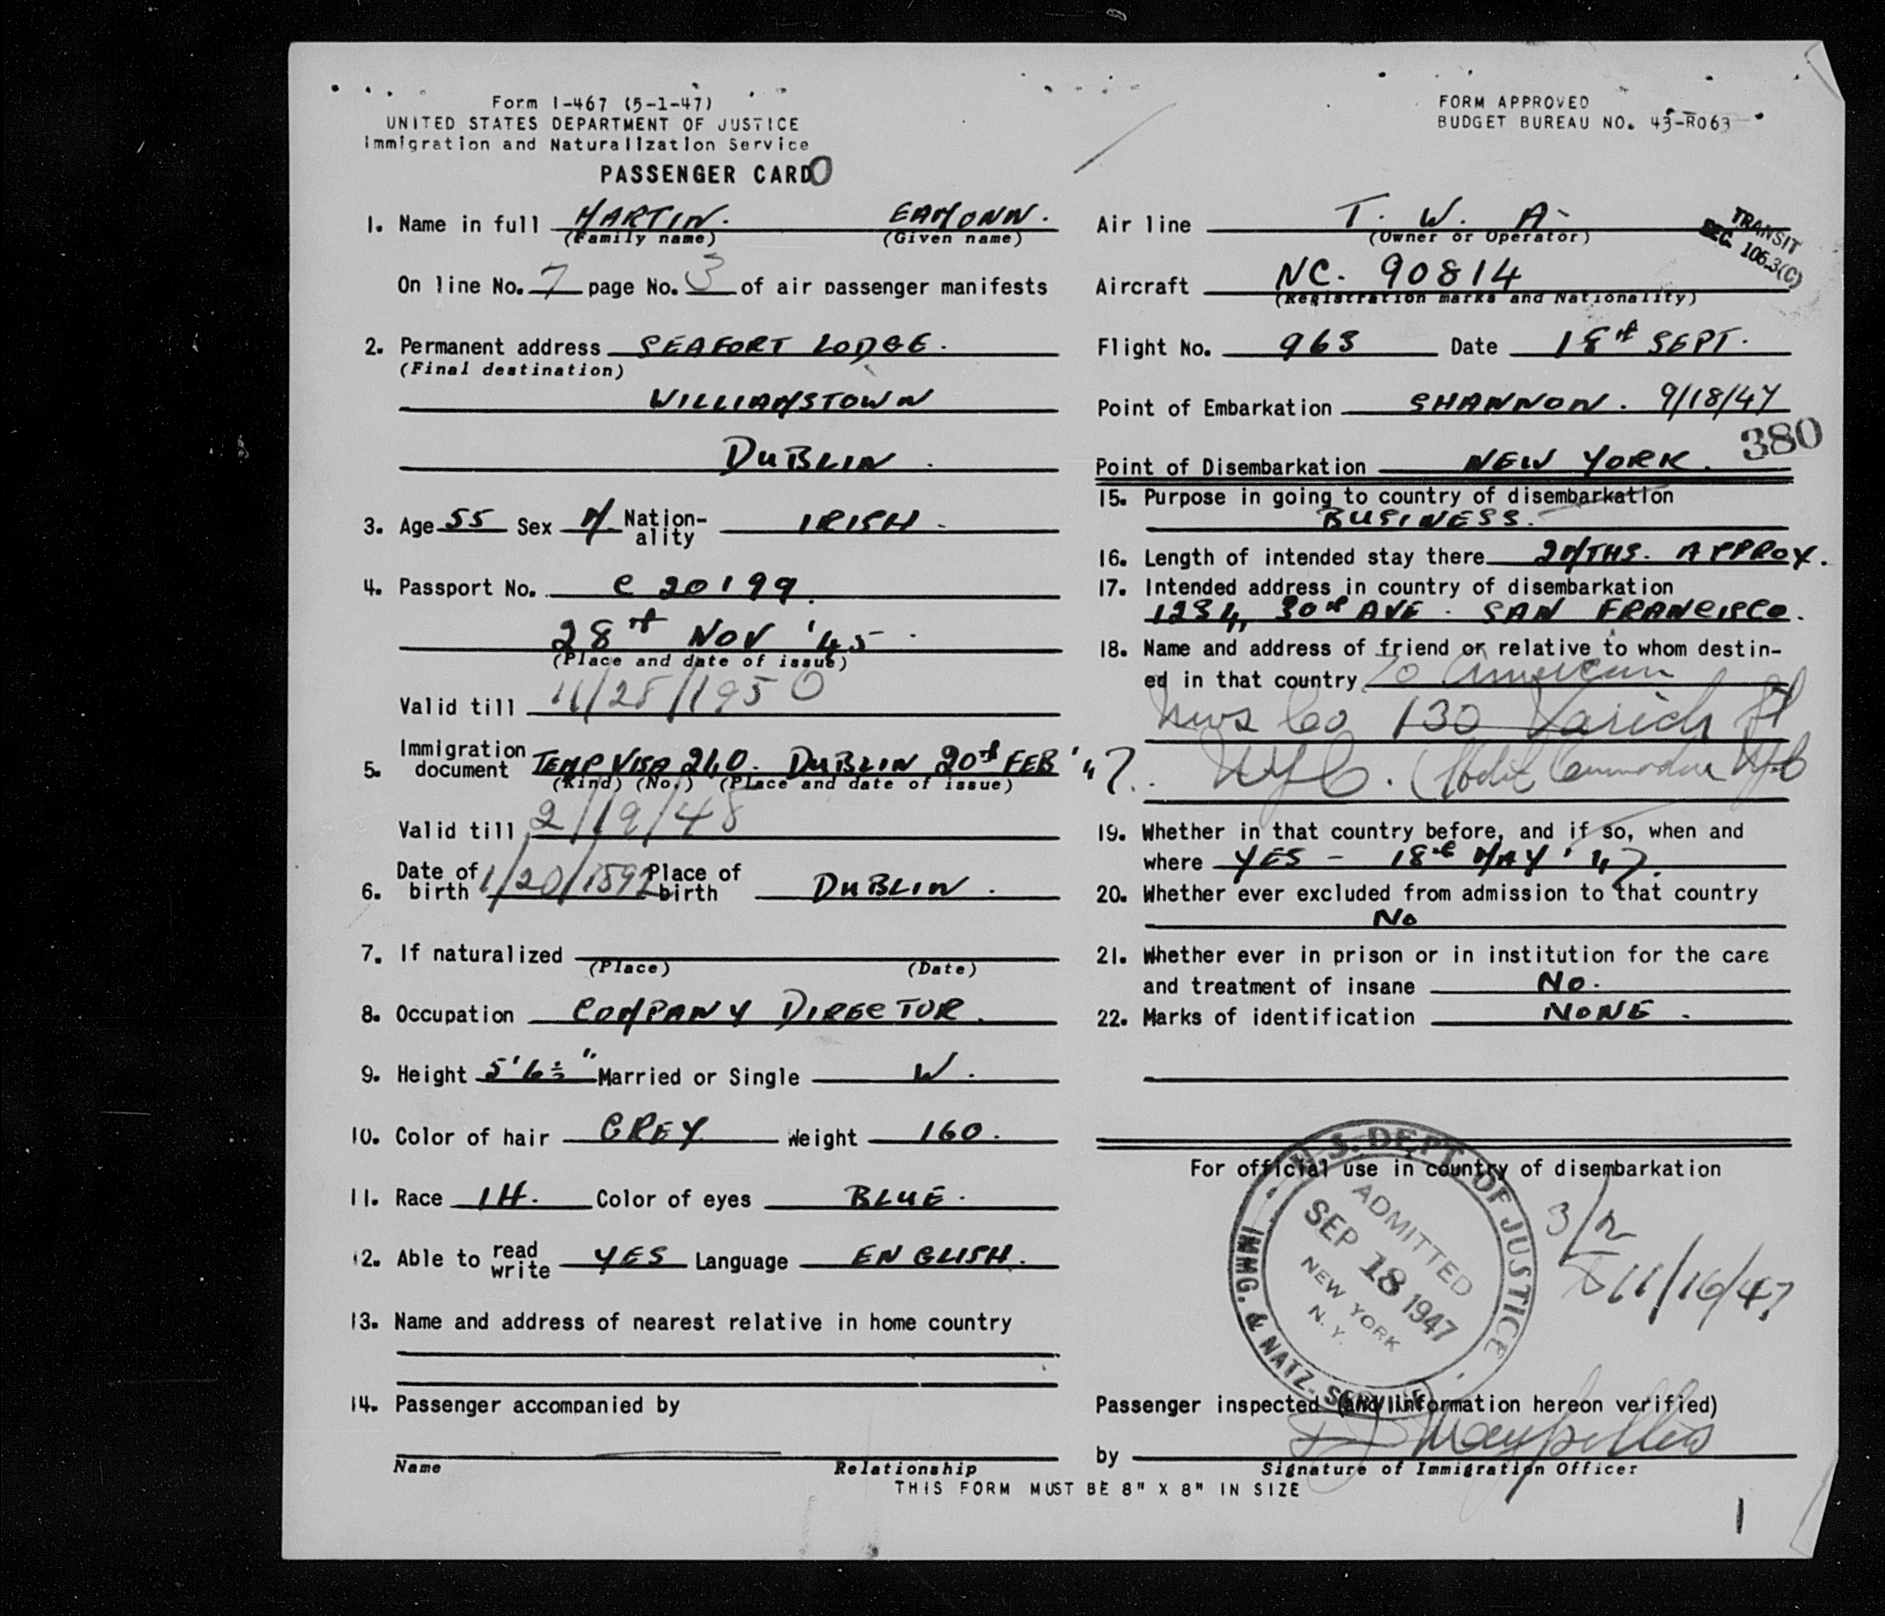 Form I-467 (5-1-47)
UNITED STATES DEPARTMENT OF JUSTICE
Immigration and Naturalization Service
PASSENGER CARD
FORM APPROVED
BUDGET BUREAU NO. 43-R063
1. Name in full MARTIN. EAMONN.
(Family name) (Given name)
On line No. 7 page No. 3 of air passenger manifests
2. Permanent address SEAFORT LODGE.
(Final destination)
WILLIAMSTOWN
DUBLIN.
3. Age 55 Sex M Nation-ality IRISH.
4. Passport No. C 20199.
28th NOV '45.
(Place and date of issue)
Valid till 11/28/1950
5. Immigration document TEMP VISA 240. DUBLIN 20th FEB '47.
(Kind) (No.) (Place and date of issue)
Valid till 2/19/48
6. Date of birth 1/20/1892 Place of birth DUBLIN.
7. If naturalized
(Place) (Date)
8. Occupation COMPANY DIRECTOR.
9. Height 5'6½" Married or Single W.
10. Color of hair GREY Weight 160.
11. Race IH. Color of eyes BLUE.
12. Able to read write YES Language ENGLISH.
13. Name and address of nearest relative in home country
14. Passenger accompanied by
Name Relationship
Air line T. W. A.
(Owner or Operator)
TRANSIT
SEC. 106.3(C)
Aircraft NC. 90814
(Registration marks and Nationality)
Flight No. 963 Date 18th SEPT.
Point of Embarkation SHANNON. 9/18/47
380
Point of Disembarkation NEW YORK.
15. Purpose in going to country of disembarkation
BUSINESS.
16. Length of intended stay there 2 MTHS. APPROX.
17. Intended address in country of disembarkation
1234, 30th AVE. SAN FRANCISCO.
18. Name and address of friend or relative to whom destin-
ed in that country c/o American
News Co 130 Varick St
NYC. (Hotel Commodore NYC
19. Whether in that country before, and if so, when and
where YES - 18th MAY '47.
20. Whether ever excluded from admission to that country
No
21. Whether ever in prison or in institution for the care
and treatment of insane No.
22. Marks of identification NONE.
For official use in country of disembarkation
U.S. DEPT. OF JUSTICE
IMMG. & NATZ. SERVICE
ADMITTED
SEP 18 1947
NEW YORK
N.Y.
11/16/47
Passenger inspected (and information hereon verified)
by
Signature of Immigration Officer
THIS FORM MUST BE 8" X 8" IN SIZE